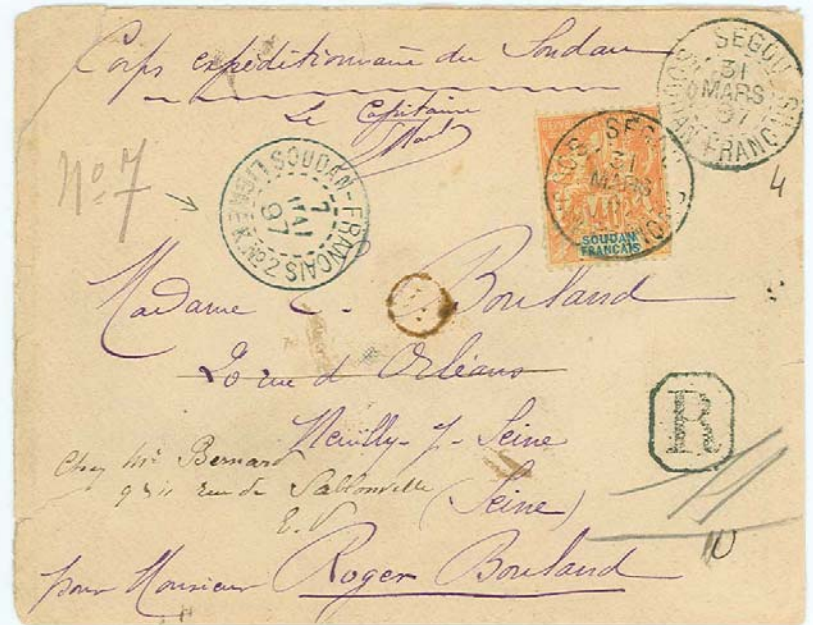 Corps expéditionnaire du Soudan
Le Capitaine
No 7
SEGOU
31
MARS
97
SOUDAN FRANCAIS
SEGOU
31
MARS
40
SOUDAN
FRANCAIS
SOUDAN-FRANCAIS
7
MAI
97
4
Madame C. Bouland
20 rue d'Orléans
Neuilly-s-Seine
(Seine)
R
Chez Mr Bernard
9 & 11 rue de Sablonville
E.V
10
pour Monsieur Roger Bouland